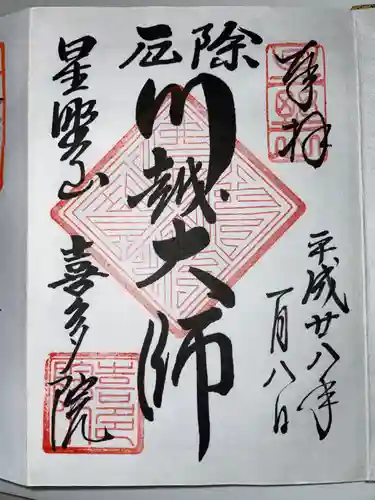 奉拝
平成廿八年
一月八日
厄除
川越大師
星野山
喜多院